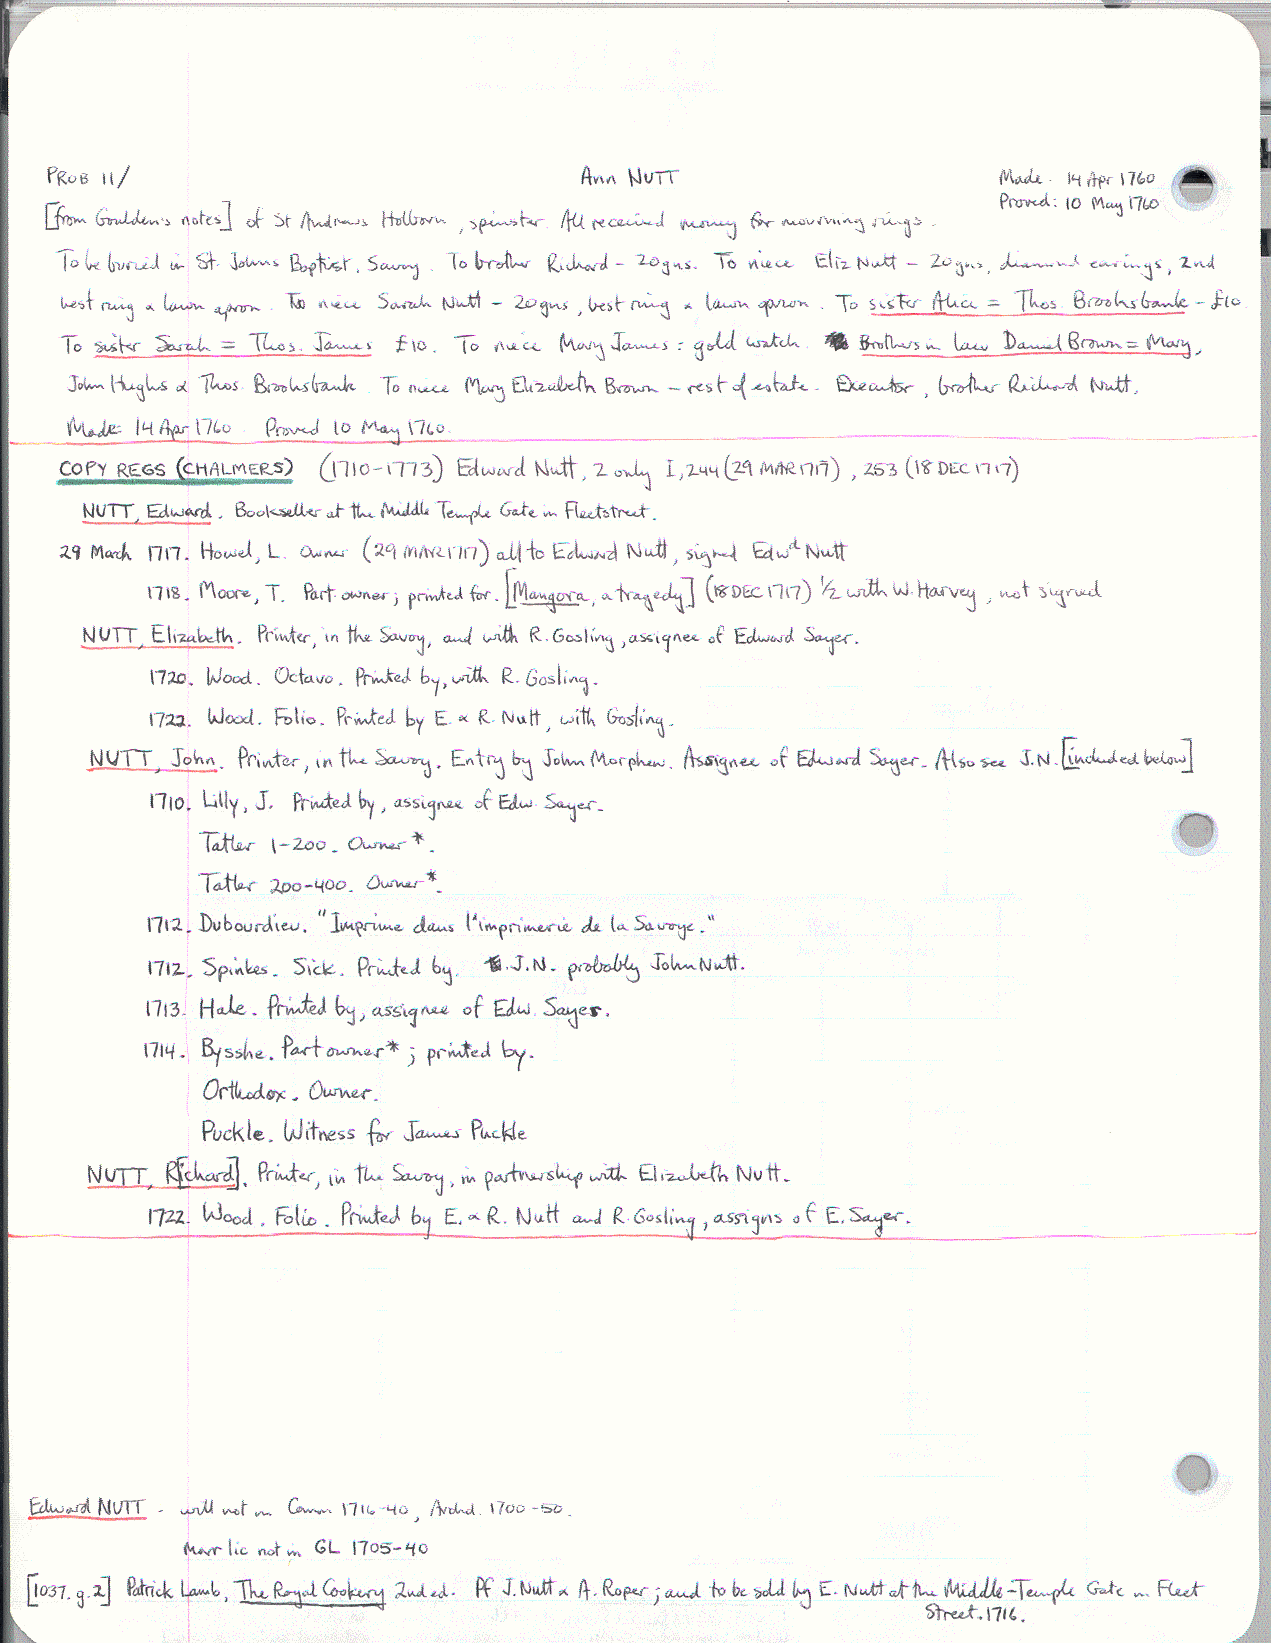 PROB 11/ Ann NUTT Made. 14 Apr 1760
Proved: 10 May 1760
[from Goulden's notes] of St Andrews Holborn, spinster. All received money for mourning rings.
To be buried in St. Johns Baptist, Savoy. To brother Richard - 20gns. To niece Eliz Nutt - 20gns, diamond earings, 2nd
best ring & lawn apron. To niece Sarah Nutt - 20gns, best ring & lawn apron. To sister Alice = Thos. Brooksbank - £10
To sister Sarah = Thos. James £10. To niece Mary James: gold watch. Brothers in law Daniel Brown = Mary,
John Hughs & Thos Brooksbank. To niece Mary Elizabeth Brown - rest of estate. Executor, brother Richard Nutt.
Made: 14 Apr 1760 Proved 10 May 1760.
COPY REGS (CHALMERS) (1710-1773) Edward Nutt, 2 only I, 244 (29 MAR 1717), 253 (18 DEC 1717)
NUTT, Edward. Bookseller at the Middle Temple Gate in Fleetstreet.
29 March 1717. Howel, L. Owner (29 MAR 1717) all to Edward Nutt, signed Edwd Nutt
1718. Moore, T. Part owner; printed for. [Mangora, a tragedy] (18 DEC 1717) ½ with W. Harvey, not signed
NUTT, Elizabeth. Printer, in the Savoy, and with R. Gosling, assignee of Edward Sayer.
1720. Wood. Octavo. Printed by, with R. Gosling.
1722. Wood. Folio. Printed by E. & R. Nutt, with Gosling.
NUTT, John. Printer, in the Savoy. Entry by John Morphew. Assignee of Edward Sayer. Also see J.N. [included below]
1710. Lilly, J. Printed by, assignee of Edw. Sayer.
Tatler 1-200. Owner*.
Tatler 200-400. Owner*.
1712. Dubourdieu. "Imprime dans l'imprimerie de la Savoye."
1712. Spinkes. Sick. Printed by. J.N. probably John Nutt.
1713. Hale. Printed by, assignee of Edw. Sayer.
1714. Bysshe. Part owner*; printed by.
Orthodox. Owner.
Puckle. Witness for James Puckle
NUTT, R[ichard]. Printer, in the Savoy, in partnership with Elizabeth Nutt.
1722. Wood. Folio. Printed by E. & R. Nutt and R. Gosling, assigns of E. Sayer.
Edward NUTT - will not in Comm 1716-40, Archd. 1700-50.
Marr lic not in GL 1705-40
[1037.g.2] Patrick Lamb, The Royal Cookery 2nd ed. Pf J. Nutt & A. Roper; and to be sold by E. Nutt at the Middle-Temple Gate in Fleet
Street. 1716.